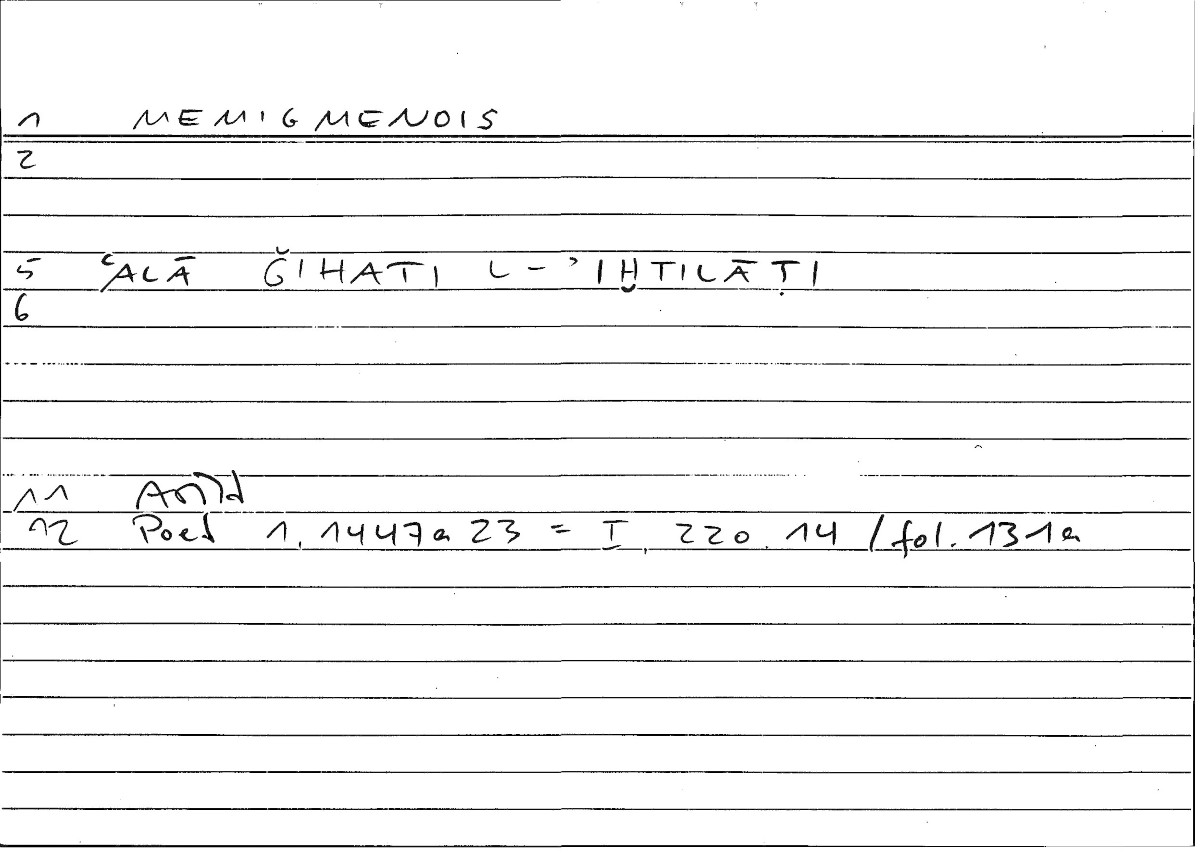 1 MEMIGMENOIS
2
5 ʿALĀ ǦIHATI L-ʾIḪTILĀṬI
6
11
12 Poet 1, 1447a 23 = I, 220.14 / fol. 131a